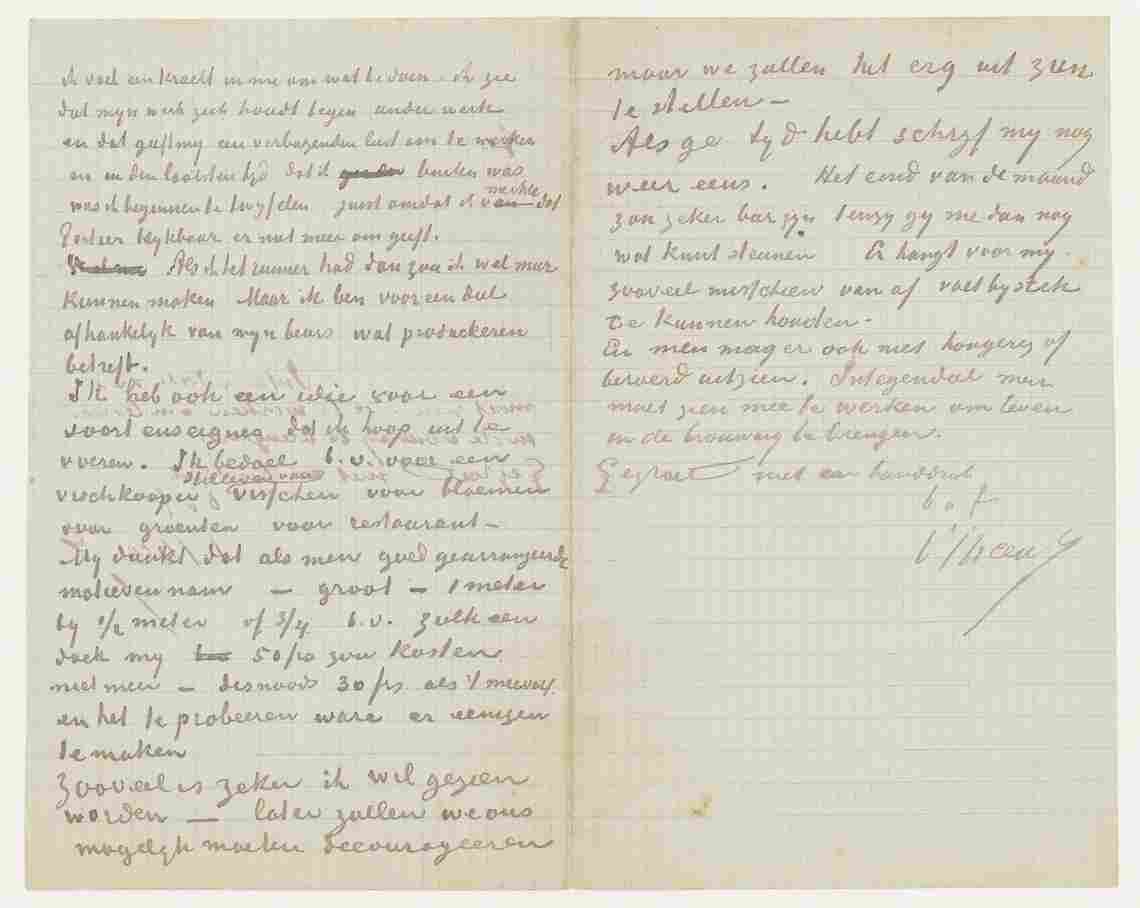 ik voel een kracht in me om wat te doen. ik zie
dat myn werk zich houdt tegen ander werk
en dat geeft my een verbazenden lust om te werken
en in den laatsten tyd dat ik buiten was
was ik begonnen te twyfelen juist omdat ik merkte dat
Portier blykbaar er niet meer om geeft.
Als ik het ruimer had dan zou ik wel meer
kunnen maken Maar ik ben voor een deel
afhankelyk van myn beurs wat produceeren
betreft.
Ik heb ook een idee voor een
soort enseignes dat ik hoop uit te
voeren. Ik bedoel b.v. voor een
vischkooper stilleven van visschen voor bloemen
voor groenten voor restaurant –
My dunkt dat als men goed gearrangeerde
motieven nam – groot – 1 meter
by 1/2 meter of 3/4 b.v. zulk een
doek my 50 frs zou kosten
niet meer – desnoods 30 frs als 't meeviel
en het te probeeren ware er eenigen
te maken
Zooveel is zeker ik wil gezien
worden – later zullen we ons
mogelyk moeten decourageeren
maar we zullen het erg uit zien
te stellen –
Als ge tyd hebt schryf my nog
weer eens. Het eind van de maand
zou zeker bar zyn tenzy gy me dan nog
wat kunt steunen Er hangt voor my
zooveel misschien van af voet by stek
te kunnen houden.
En men mag er ook niet hongerig of
beroerd uitzien. Integendeel men
moet zien mee te werken om leven
in de brouwery te brengen.
Gegroet met een handdruk
t. à t.
Vincent